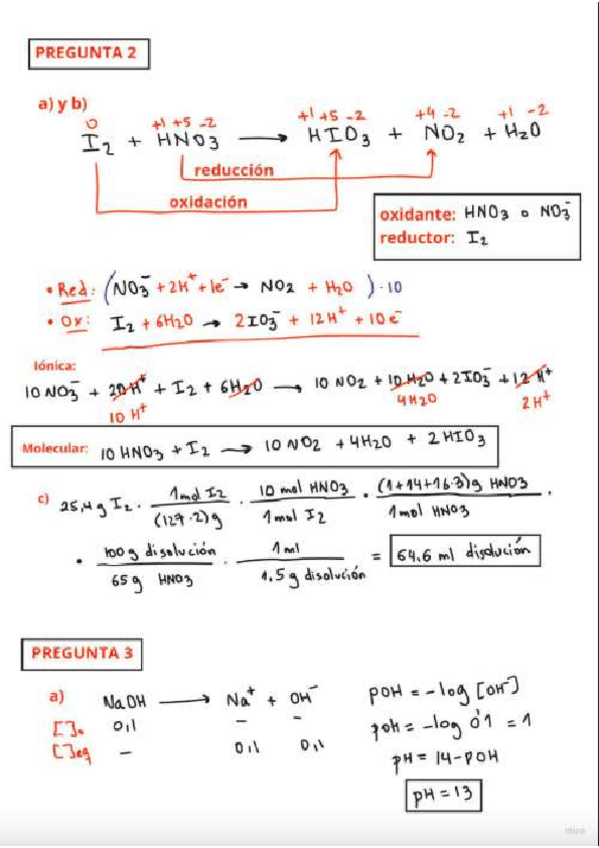 PREGUNTA 2
a) y b)
0 +1 +5 -2 +1 +5 -2 +4 -2 +1 -2
I₂ + HNO₃ ⟶ HIO₃ + NO₂ + H₂O
reducción
oxidación
oxidante: HNO₃ o NO₃⁻
reductor: I₂
• Red: (NO₃⁻ + 2H⁺ + 1e⁻ → NO₂ + H₂O) · 10
• Ox: I₂ + 6H₂O → 2IO₃⁻ + 12H⁺ + 10e⁻
Iónica:
10NO₃⁻ + 20H⁺ + I₂ + 6H₂O ⟶ 10NO₂ + 10H₂O + 2IO₃⁻ + 12H⁺
10H⁺ 4H₂O 2H⁺
Molecular: 10HNO₃ + I₂ ⟶ 10NO₂ + 4H₂O + 2HIO₃
c) 25,4g I₂ · 1mol I₂ / (127·2)g · 10 mol HNO₃ / 1mol I₂ · (1+14+16·3)g HNO₃ / 1mol HNO₃ ·
· 100g disolución / 65g HNO₃ · 1ml / 1.5g disolución = 64.6 ml disolución
PREGUNTA 3
a) NaOH ⟶ Na⁺ + OH⁻ pOH = -log [OH⁻]
[]₀ 0,1 – – pOH = -log 0'1 = 1
[]eq – 0,1 0,1 pH = 14 - pOH
pH = 13
miro